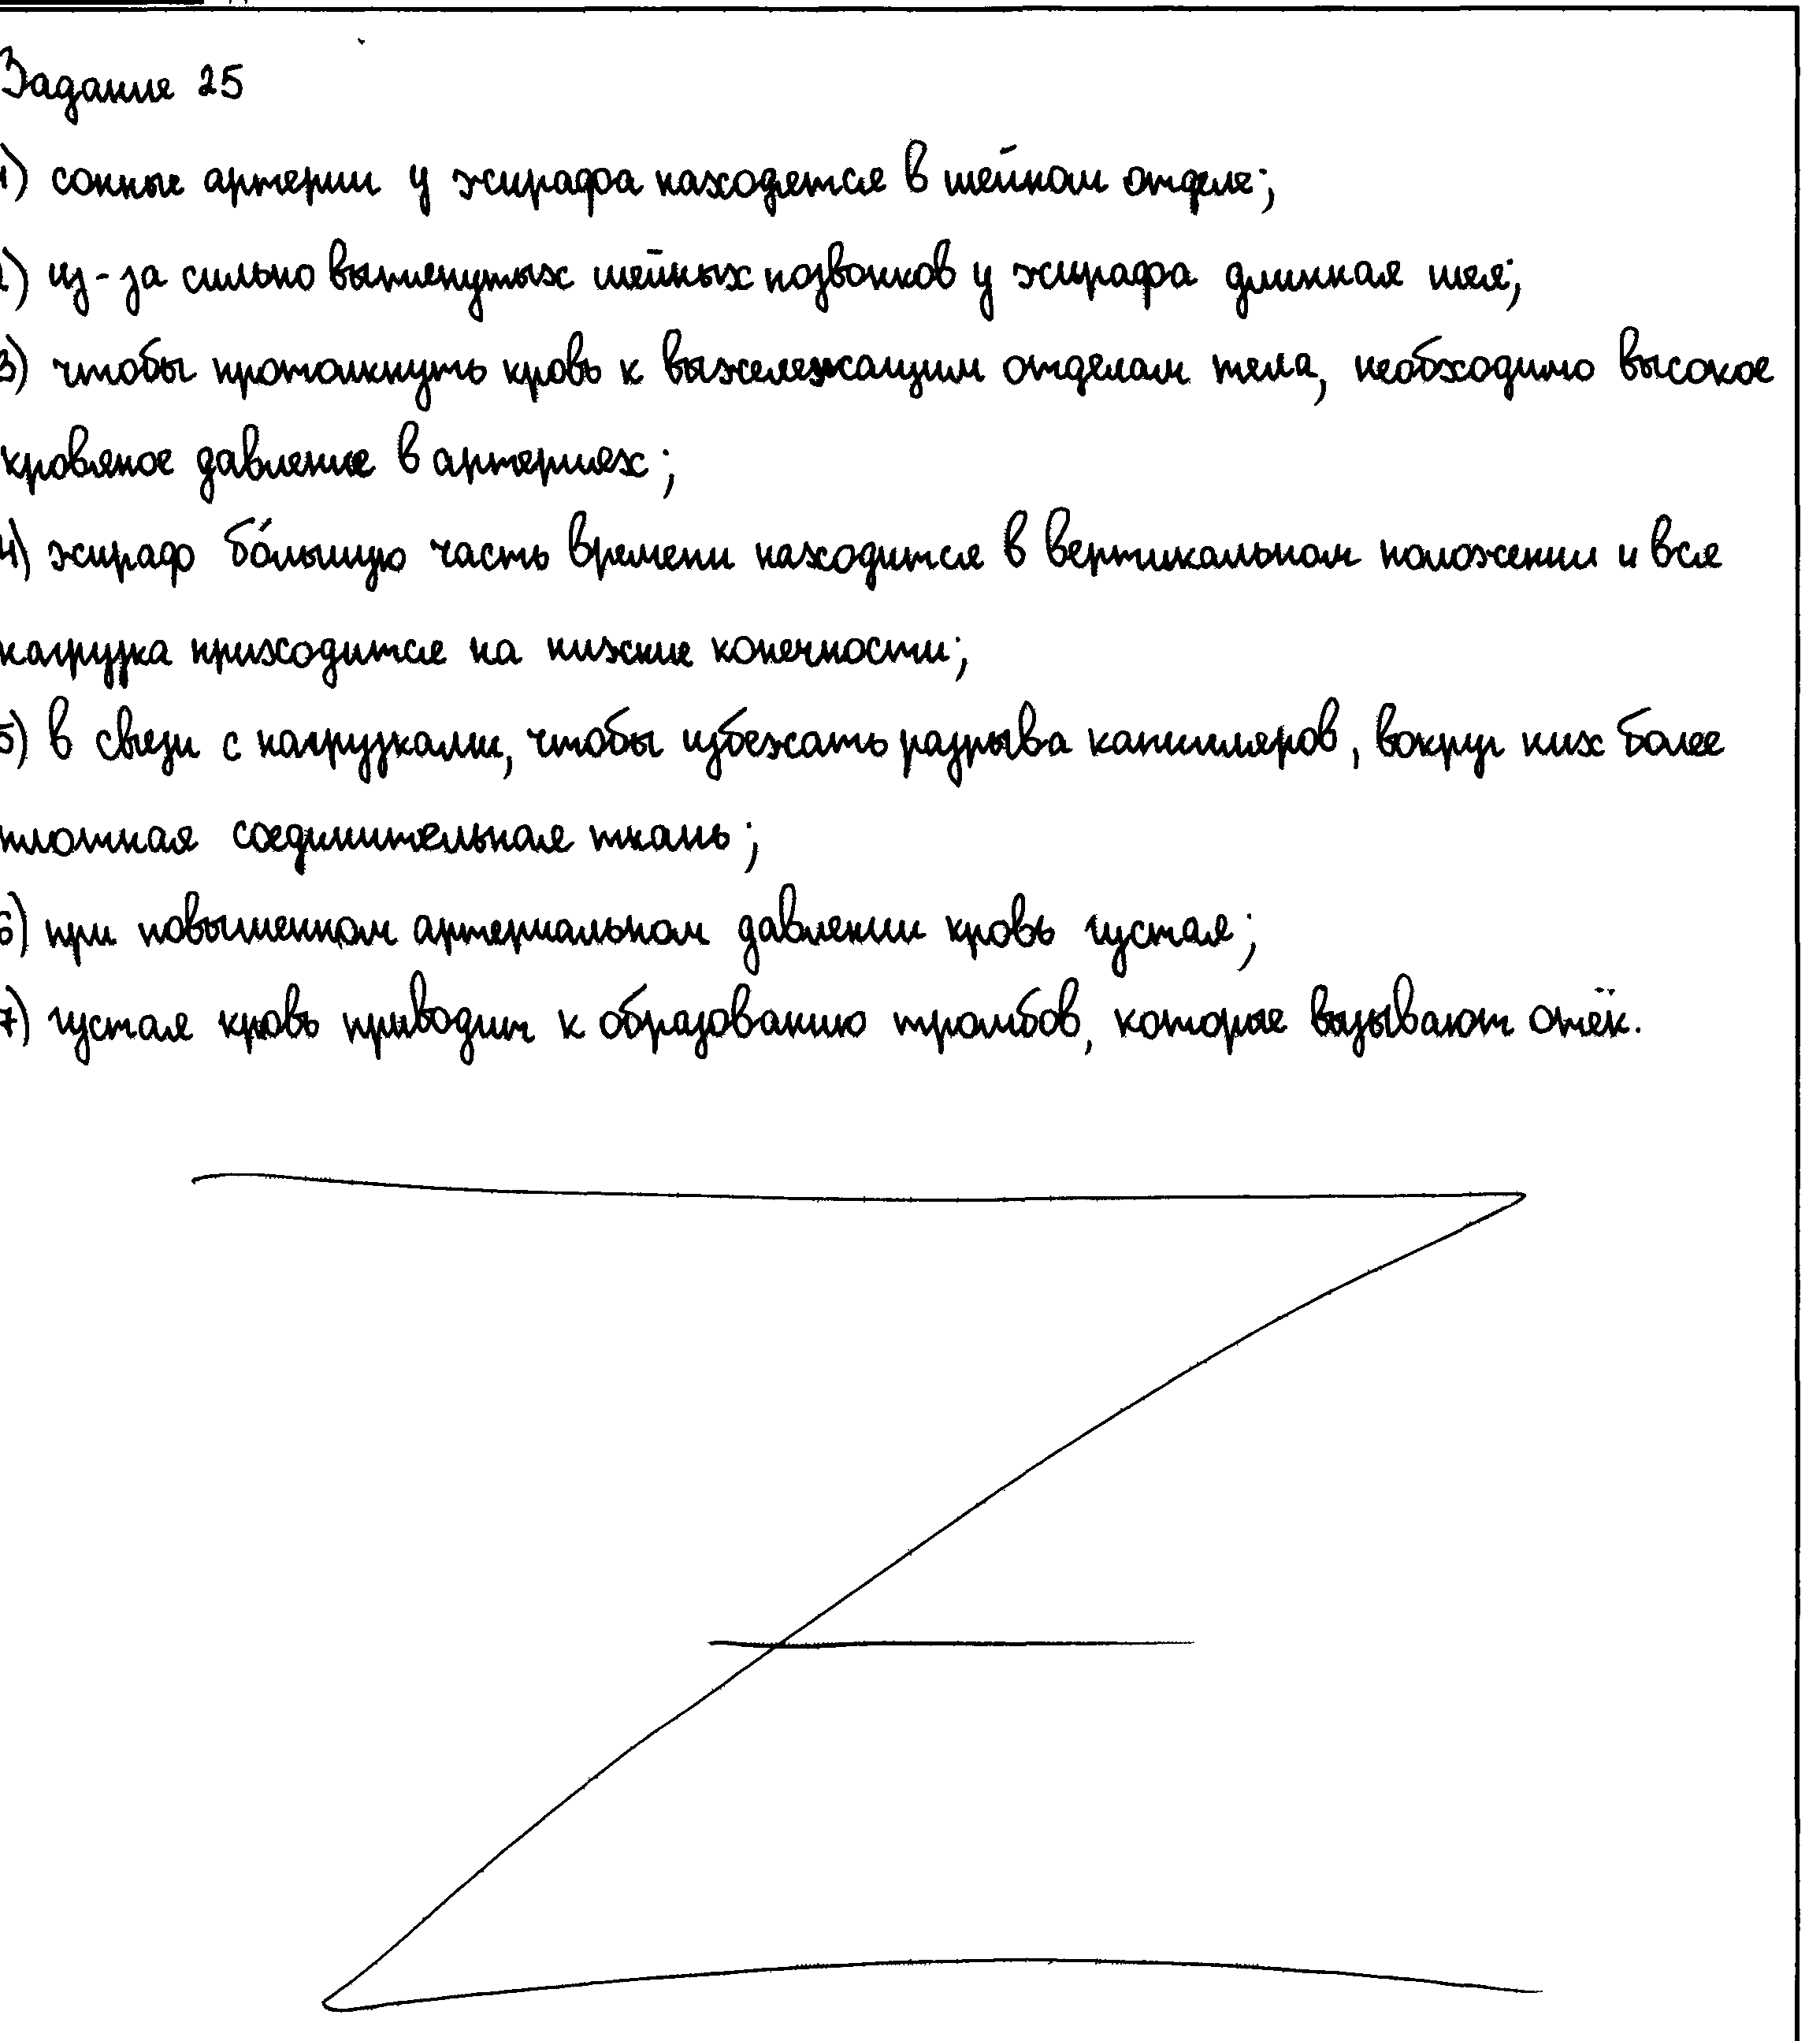 Задание 25
1) сонные артерии у жирафа находятся в шейном отделе;
2) из-за сильно вытянутых шейных позвонков у жирафа длинная шея;
3) чтобы протолкнуть кровь к вышележащим отделам тела, необходимо высокое
кровяное давление в артериях;
4) жираф бо́льшую часть времени находится в вертикальном положении и вся
нагрузка приходится на нижние конечности;
5) в связи с нагрузками, чтобы избежать разрыва капилляров, вокруг них более
плотная соединительная ткань;
6) при повышенном артериальном давлении кровь густая;
7) густая кровь приводит к образованию тромбов, которые вызывают отёк.